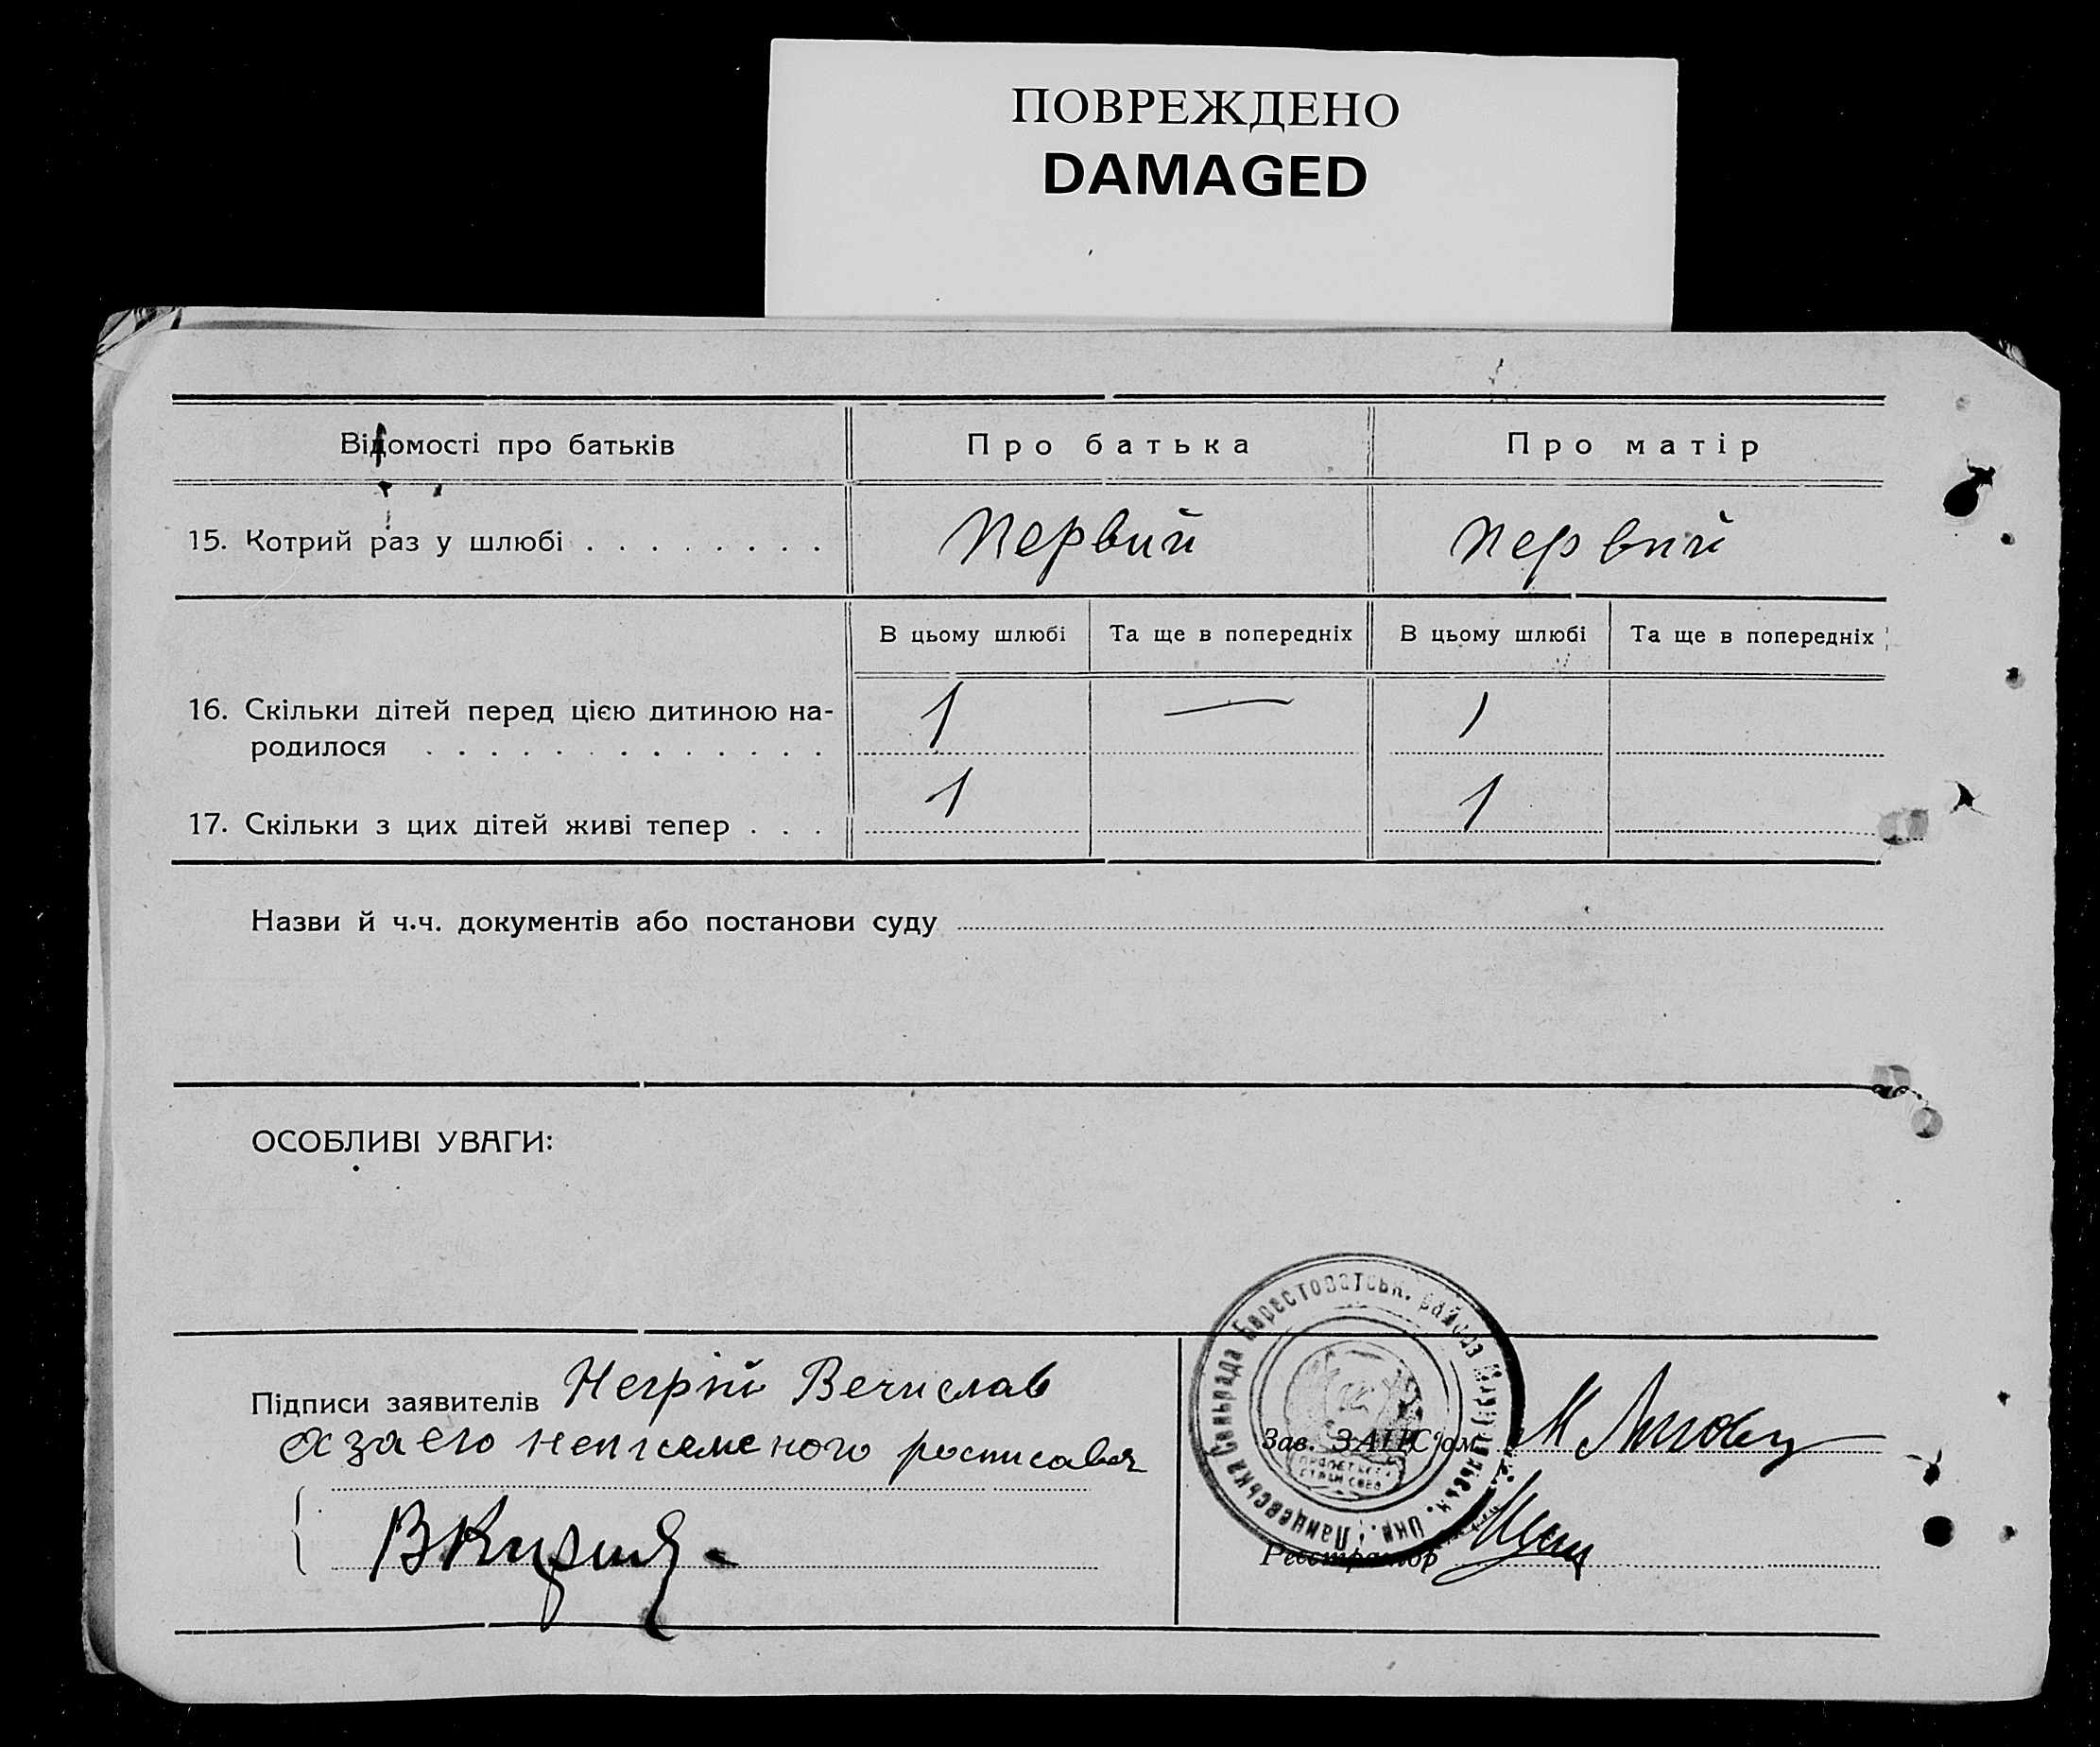 ПОВРЕЖДЕНО
DAMAGED
Відомості про батьків Про батька Про матір
15. Котрий раз у шлюбі . . . . . . . . Первий Первий
В цьому шлюбі Та ще в попередніх В цьому шлюбі Та ще в попередніх
16. Скільки дітей перед цією дитиною на-
родилося . . . . . . . . . . . . . 1 — 1
17. Скільки з цих дітей живі тепер . . . 1 1
Назви й ч.ч. документів або постанови суду
ОСОБЛИВІ УВАГИ:
Підписи заявителів Негрій Вечислав
а за его неписменого росписався
Зав. ЗАЦС'ом
Реєстратор
Сільрада Берестоватськ. району